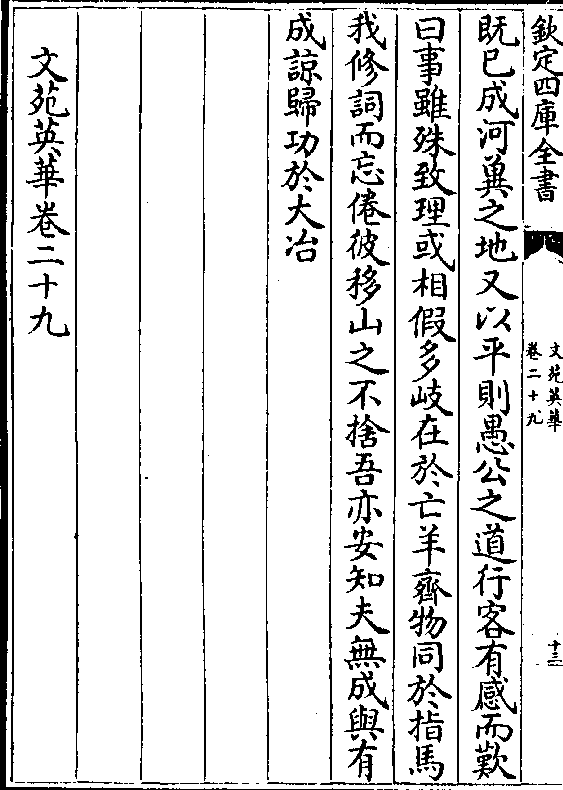 欽定四庫全書
文苑英華
卷二十九
十三
既已成河冀之地又以平則愚公之道行客有感而歎
曰事雖殊致理或相假多岐在於亡羊齊物同於指馬
我修詞而忘倦彼移山之不捨吾亦安知夫無成與有
成諒歸功於大冶
文苑英華卷二十九